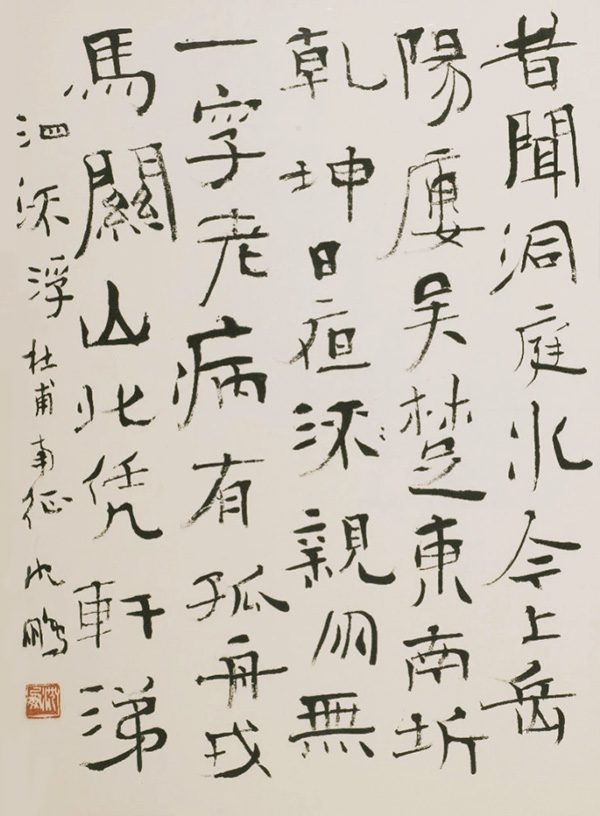 昔聞洞庭水今上岳
陽廔吳楚東南坼
乾坤日夜流親朋無
一字老病有孤舟戎
馬關山北凭軒涕
泗流浮 杜甫南征 沈鵬